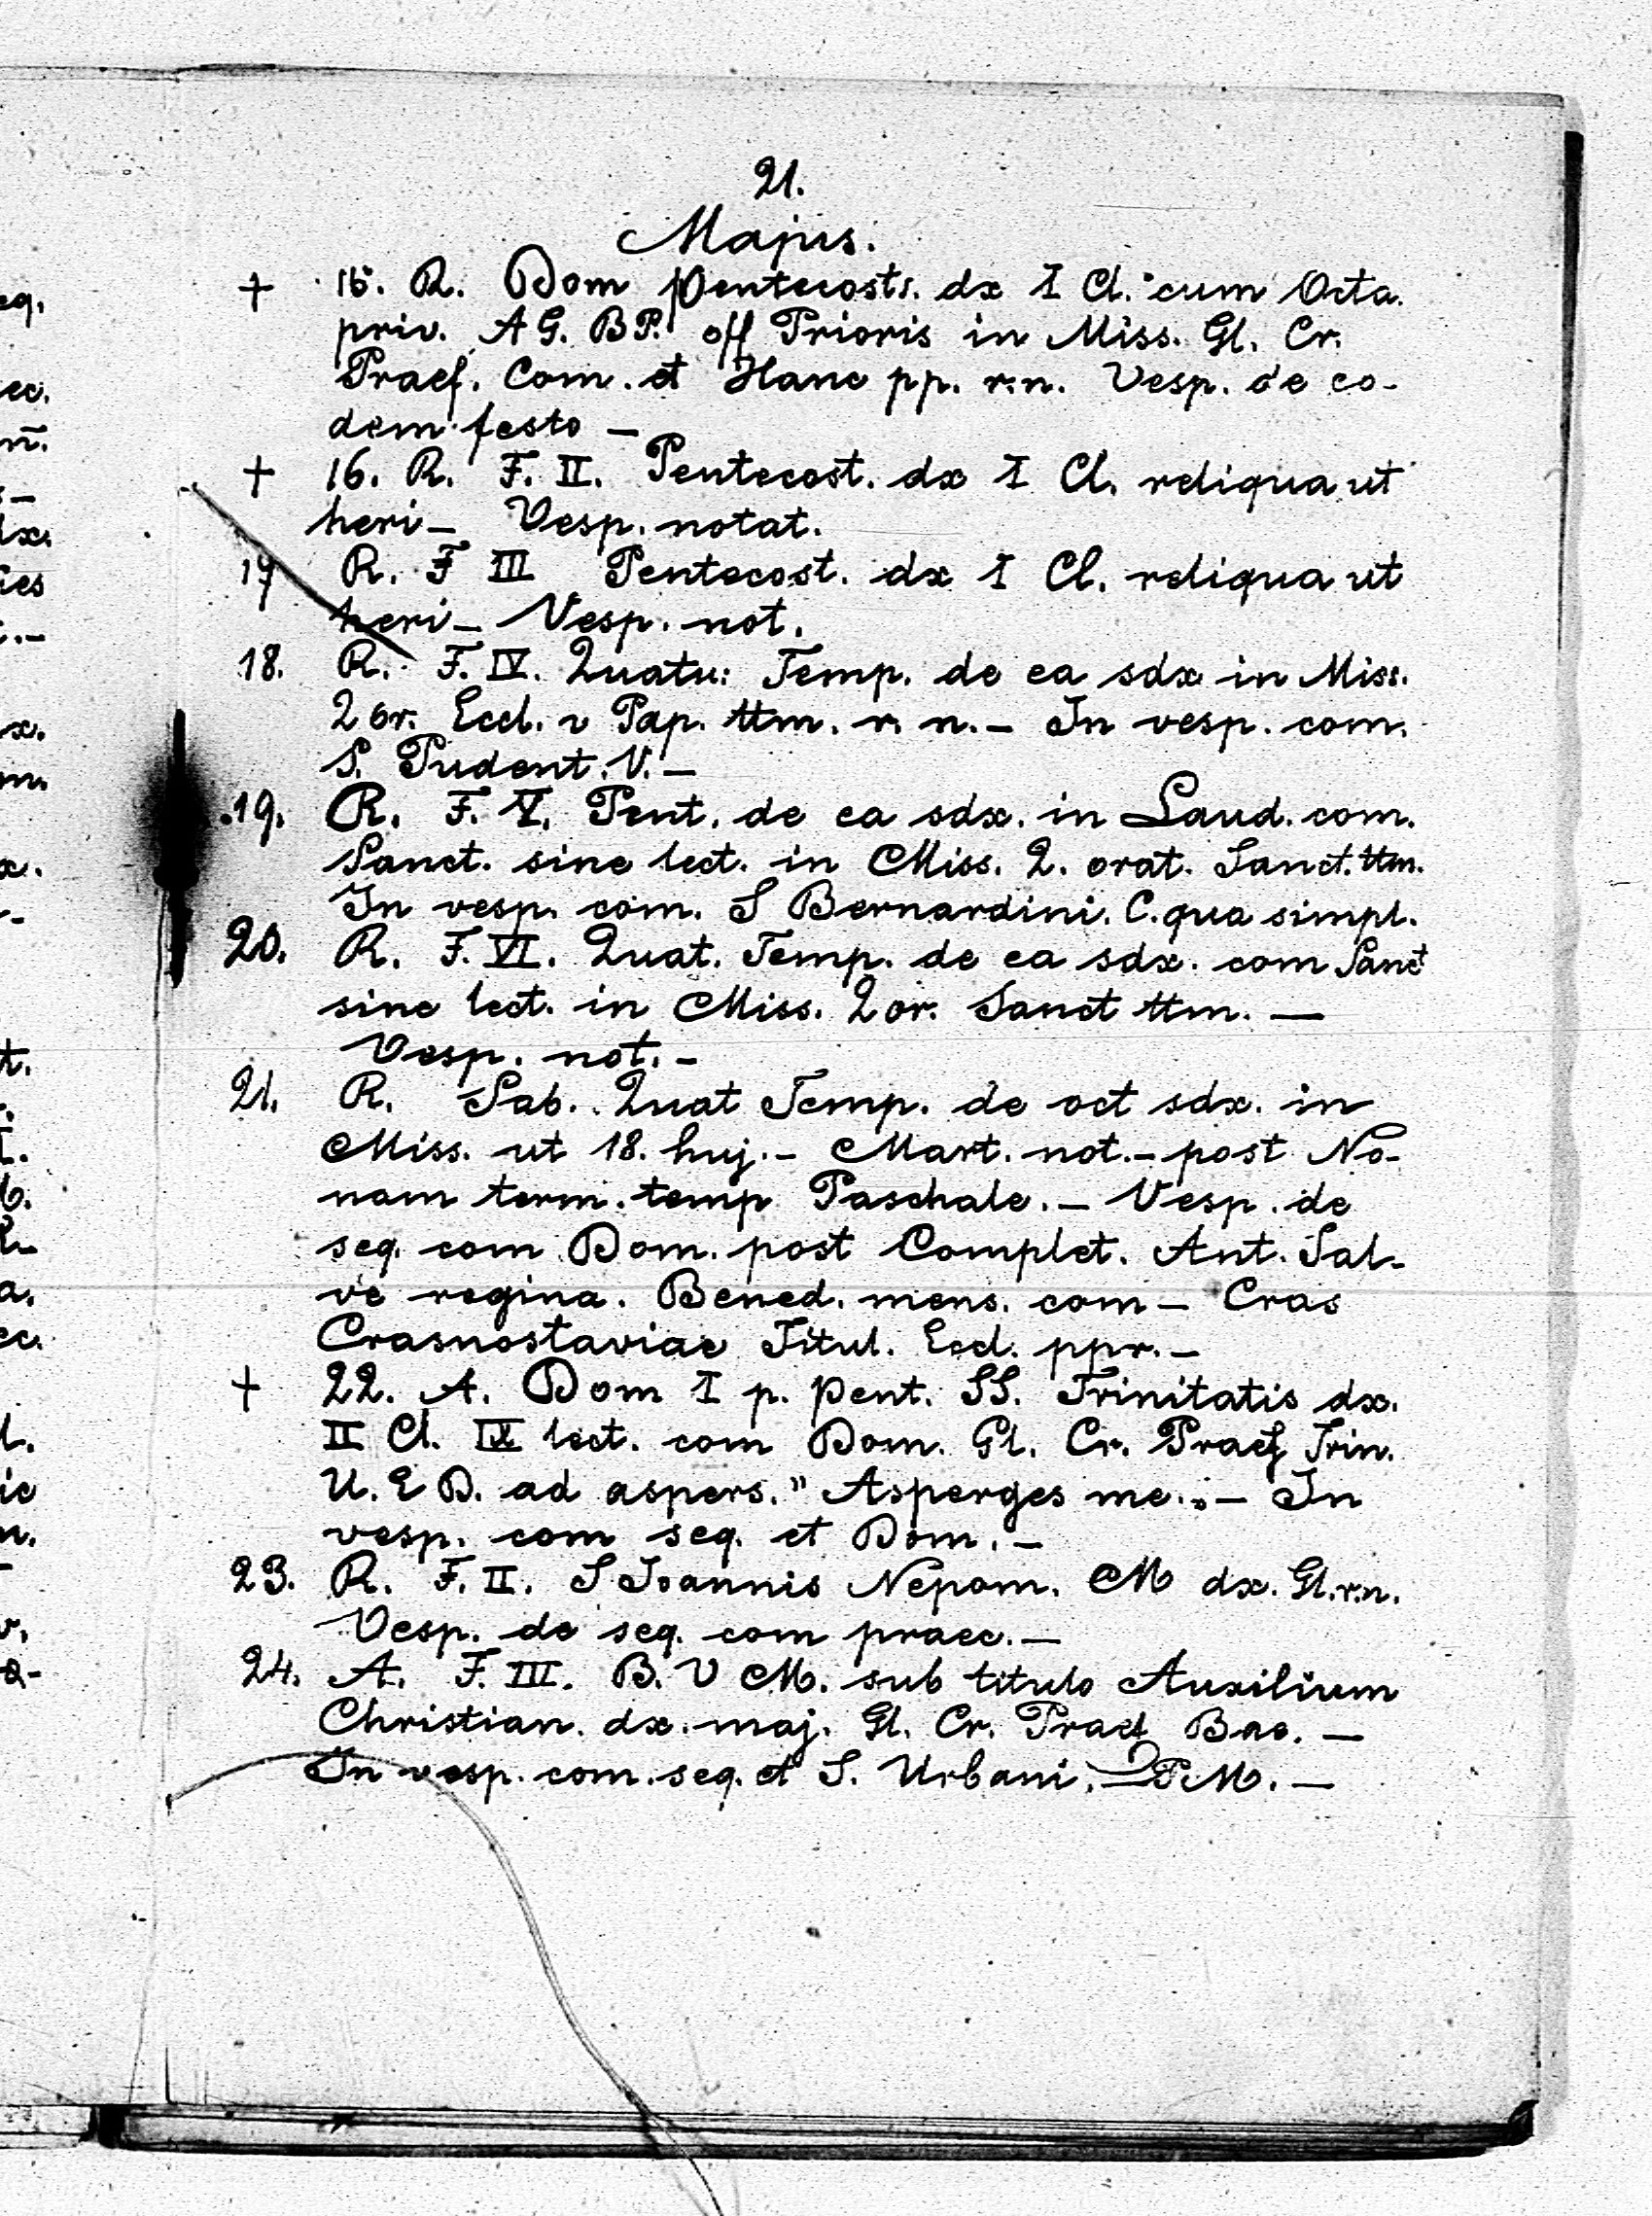 21.
Majus.
+ 15. R. Dom Pentecost. dx I Cl. cum Octa.
priv. A G. B P. off Prioris in Miss. Gl. Cr.
Praef. Com. et Hanc pp. r. n. Vesp. de eo-
dem festo –
+ 16. R. F. II. Pentecost. dx I Cl. reliqua ut
heri – Vesp. notat.
17 R. F III Pentecost. dx I Cl. reliqua ut
heri – Vesp. not.
18. R. F. IV. Quatu: Temp. de ea sdx in Miss.
2 or. Eccl. v Pap. ttm. r. n. – In vesp. com.
S. Pudent. V. –
19. R. F. V. Pent. de ea sdx. in Laud. com.
Sanct. sine lect. in Miss. 2. orat. Sanct. ttm.
In vesp. com. S Bernardini. C. qua simpl.
20. R. F. VI. Quat. Temp. de ea sdx. com Sanct
sine lect. in Miss. 2 or. Sanct ttm. –
Vesp. not. –
21. R. Sab. Quat Temp. de oct sdx. in
Miss. ut 18. huj. – Mart. not. – post No-
nam term. temp Paschale. – Vesp. de
seq. com Dom. post Complet. Ant. Sal-
ve regina. Bened. mens. com – Cras
Crasnostaviae Titul. Eccl. ppr. –
+ 22. A. Dom I p. Pent. SS. Trinitatis dx.
II Cl. IX lect. com Dom. Gl. Cr. Praef Trin.
U. E D. ad aspers. " Asperges me. – In
vesp. com seq. et Dom. –
23. R. F. II. S Joannis Nepom. M dx. Gl. r. n.
Vesp. de seq. com praec. –
24. A. F. III. B. V M. sub titulo Auxilium
Christian. dx. maj. Gl. Cr. Praef
In vesp. com. seq. et S. Urbani. P. M. –